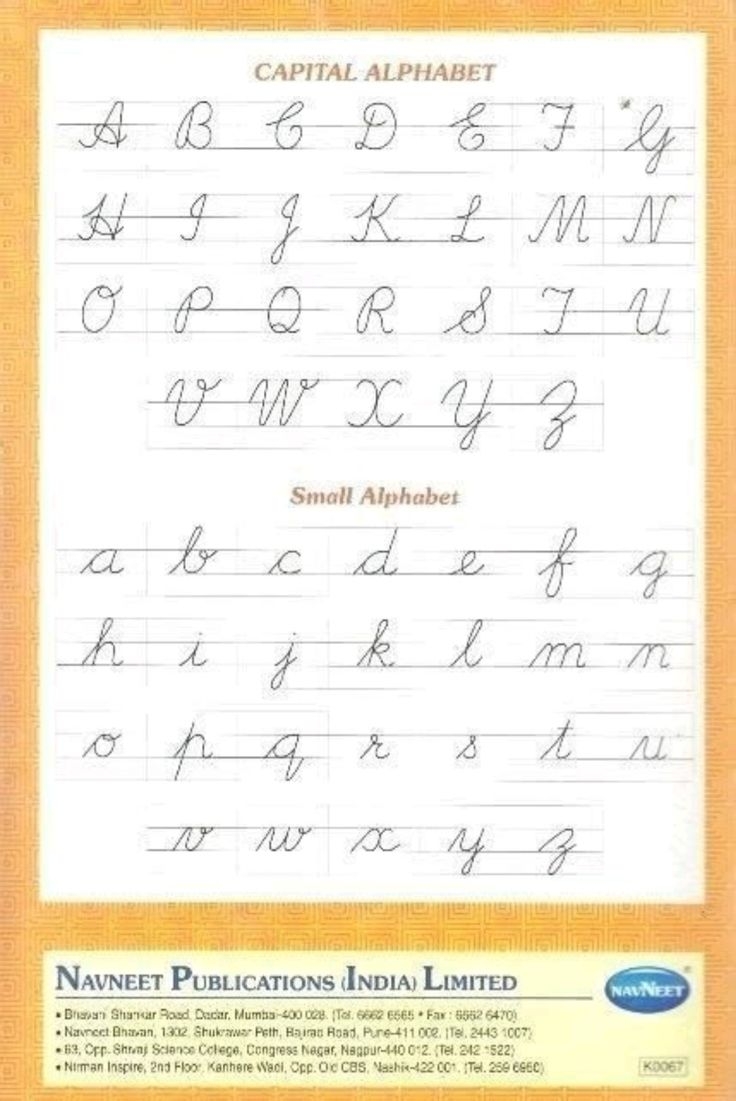 CAPITAL ALPHABET
A B C D E F G
H I J K L M N
O P Q R S T U
V W X Y Z
Small Alphabet
a b c d e f g
h i j k l m n
o p q r s t u
v w x y z
NAVNEET PUBLICATIONS (INDIA) LIMITED
NAVNEET
• Bhavani Shankar Road, Dadar, Mumbai-400 028. (Tel. 6662 6565 • Fax : 6662 6470)
• Navneet Bhavan, 1302, Shukrawar Peth, Bajirao Road, Pune-411 002. (Tel. 2443 1007)
• 63, Opp. Shivaji Science College, Congress Nagar, Nagpur-440 012. (Tel. 242 1522)
• Nirman Inspire, 2nd Floor, Kanhere Wadi, Opp. Old CBS, Nashik-422 001. (Tel. 259 6950)
K0067